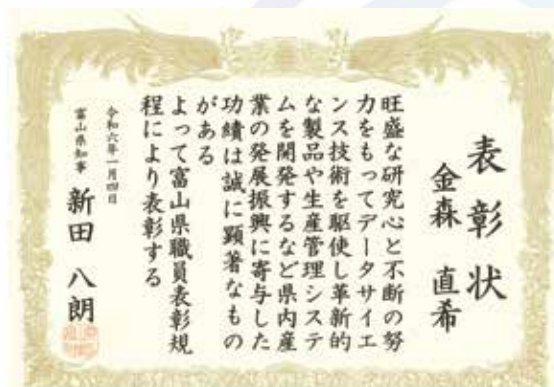 表彰状
金森 直希
旺盛な研究心と不断の努
力をもってデータサイエ
ンス技術を駆使し革新的
な製品や生産管理システ
ムを開発するなど県内産
業の発展振興に寄与した
功績は誠に顕著なもの
がある
よって富山県職員表彰規
程により表彰する
令和六年一月四日
富山県知事 新田 八朗